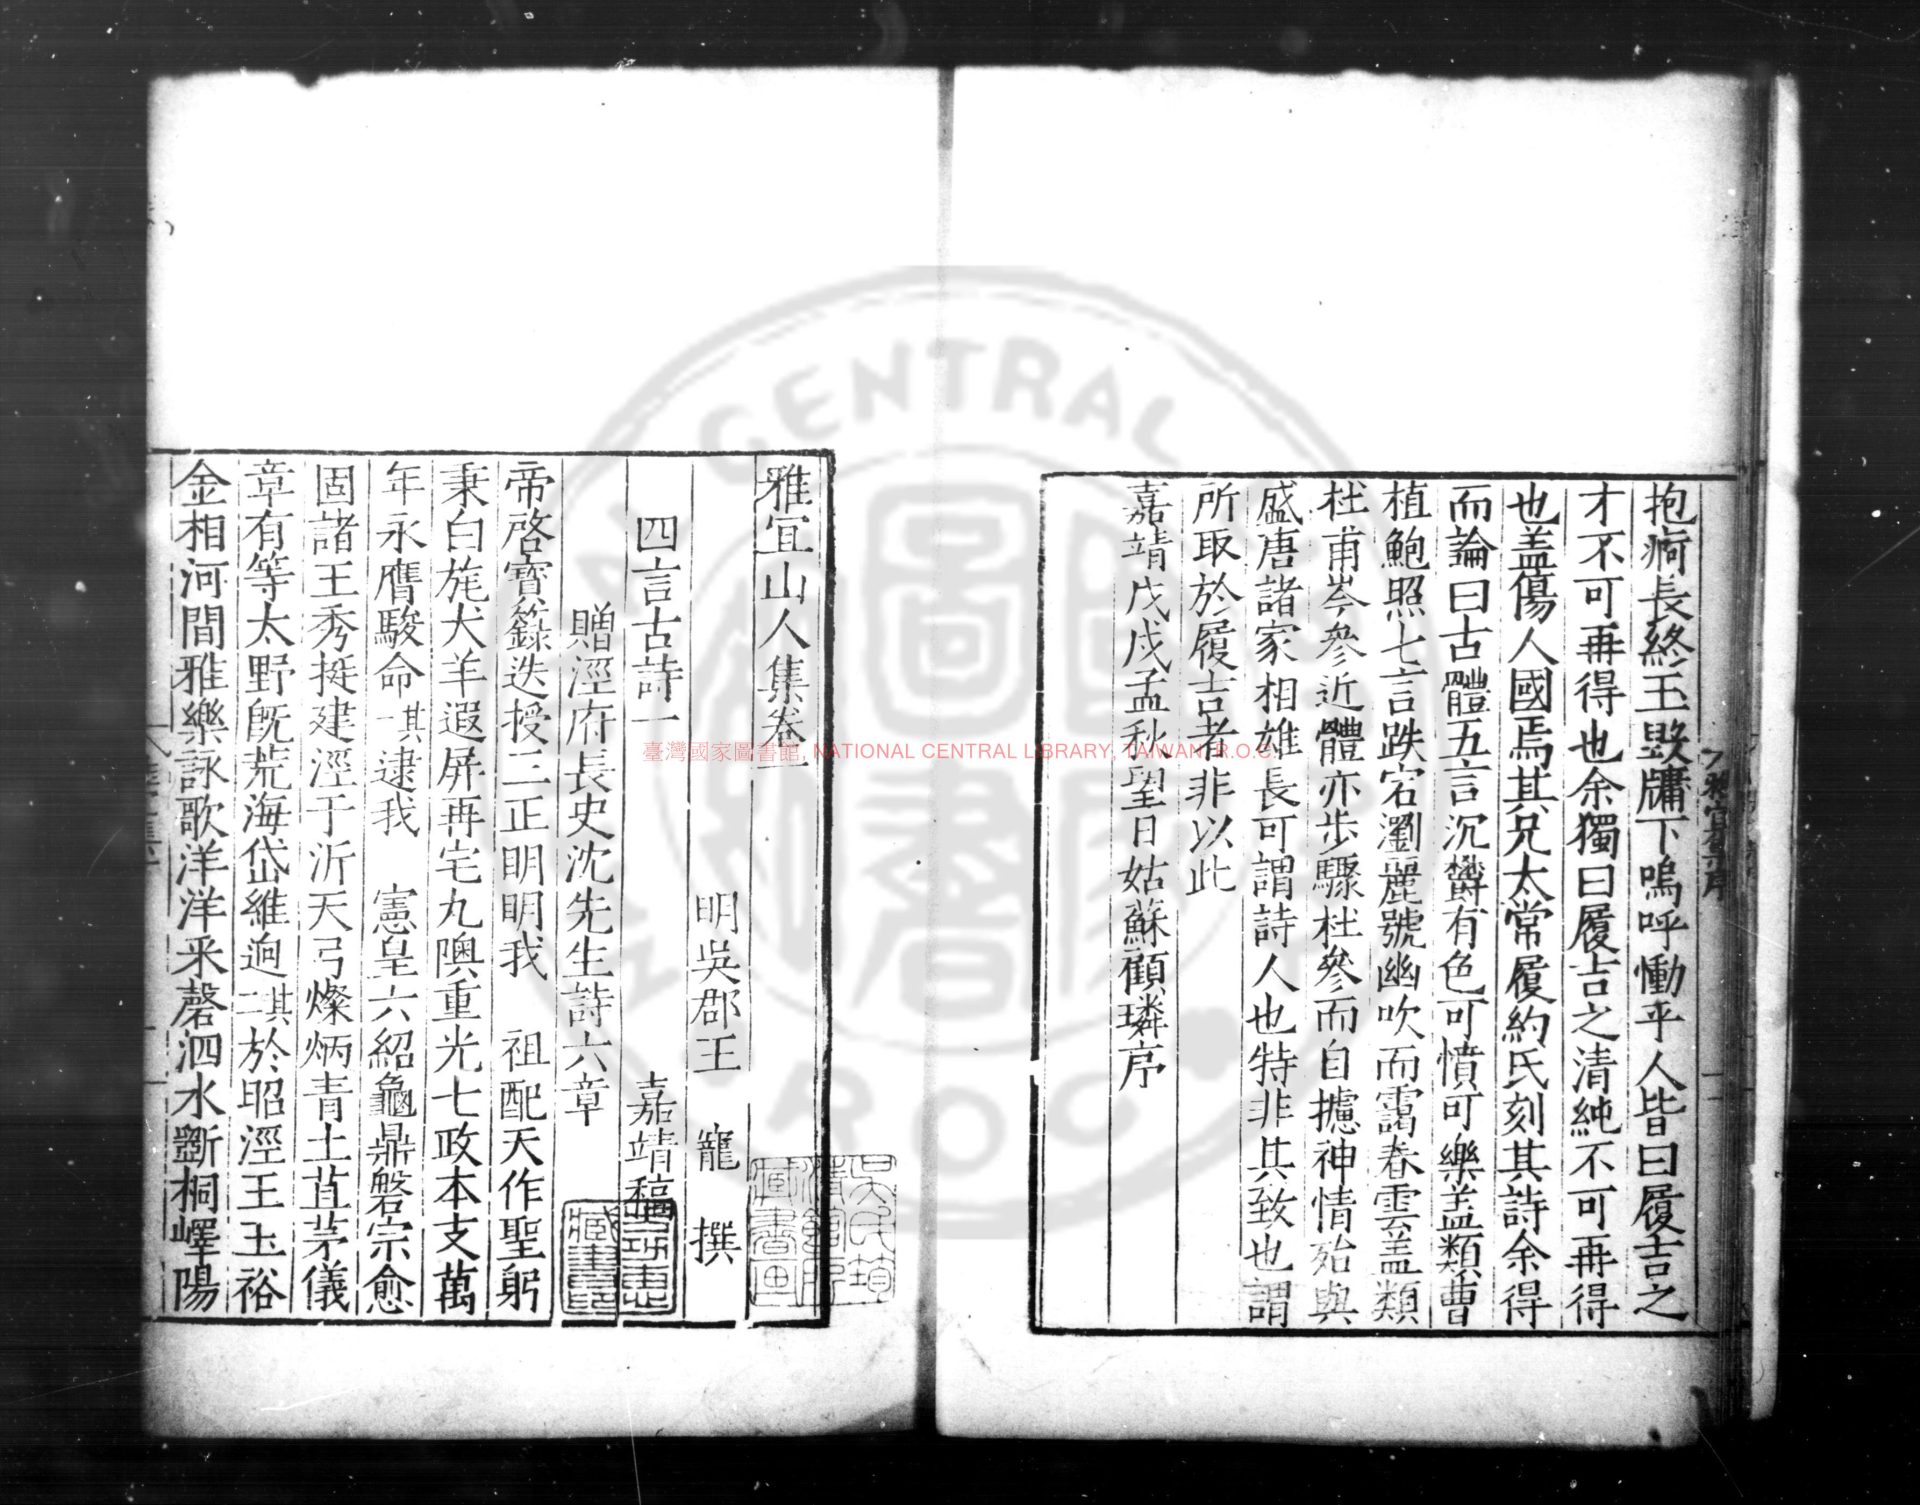 抱痾長終玉毀牗下嗚呼慟乎人皆曰履吉之
才不可再得也余獨曰履吉之清純不可再得
也盖傷人國焉其兄太常履約氏刻其詩余得
而論曰古體五言沉欝有色可憤可樂盖類曹
植鮑照七言跌宕瀏麗號幽吹而靄春雲盖類
杜甫岑參近體亦步驟杜參而自攄神情殆與
盛唐諸家相雄長可謂詩人也特非其致也謂
所取於履吉者非以此
嘉靖戊戌孟秋望日姑蘇顧璘序
雅宜山人集卷一
明吳郡王 寵 撰
四言古詩一 嘉靖稿
贈涇府長史沈先生詩六章
帝啓寳籙迭授三正明明我 祖配天作聖躬
秉白旄犬羊遐屏再宅九隩重光七政本支萬
年永膺駿命 其一 逮我 憲皇六紹龜鼎磐宗愈
固諸王秀挺建涇于沂天弓燦炳青土苴茅儀
章有等太野旣荒海岱維逈 其二 於昭涇王玉裕
金相河間雅樂詠歌洋洋采磬泗水斵桐嶧陽
雅宜集序
吳氏
清館所
藏書畫
藏書
臺灣國家圖書館, NATIONAL CENTRAL LIBRARY, TAIWAN (R.O.C)